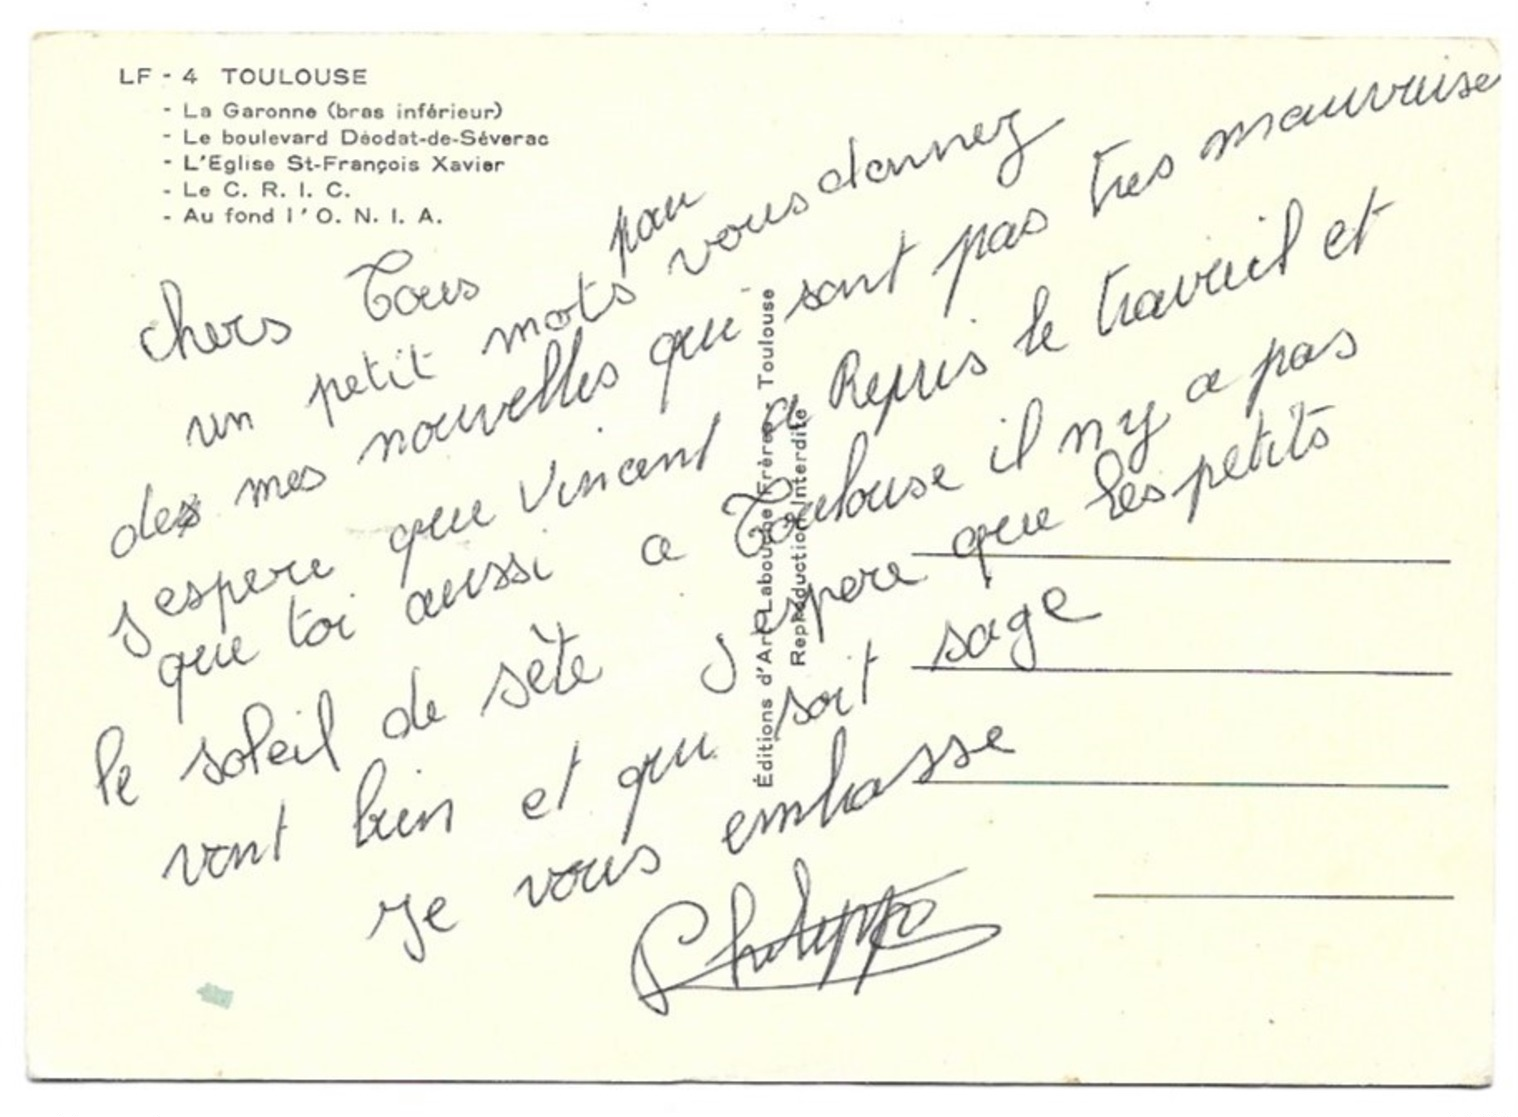 LF - 4 TOULOUSE
- La Garonne (bras inférieur)
- Le boulevard Déodat-de-Séverac
- L'Eglise St-François Xavier
- Le C. R. I. C.
- Au fond l'O. N. I. A.
chers Tous
un petit mots pour vous donnez
des mes nouvelles qui sont pas tres mauvuse
j espere que Vincent a Repris le travail et
que toi aussi a Toulouse il n y a pas
le soleil de sète j'espere que les petits
vont bien et qu soit sage
Je vous embrasse
Philippe
Éditions d'Art Labouche Frères - Toulouse
Reproduction Interdite